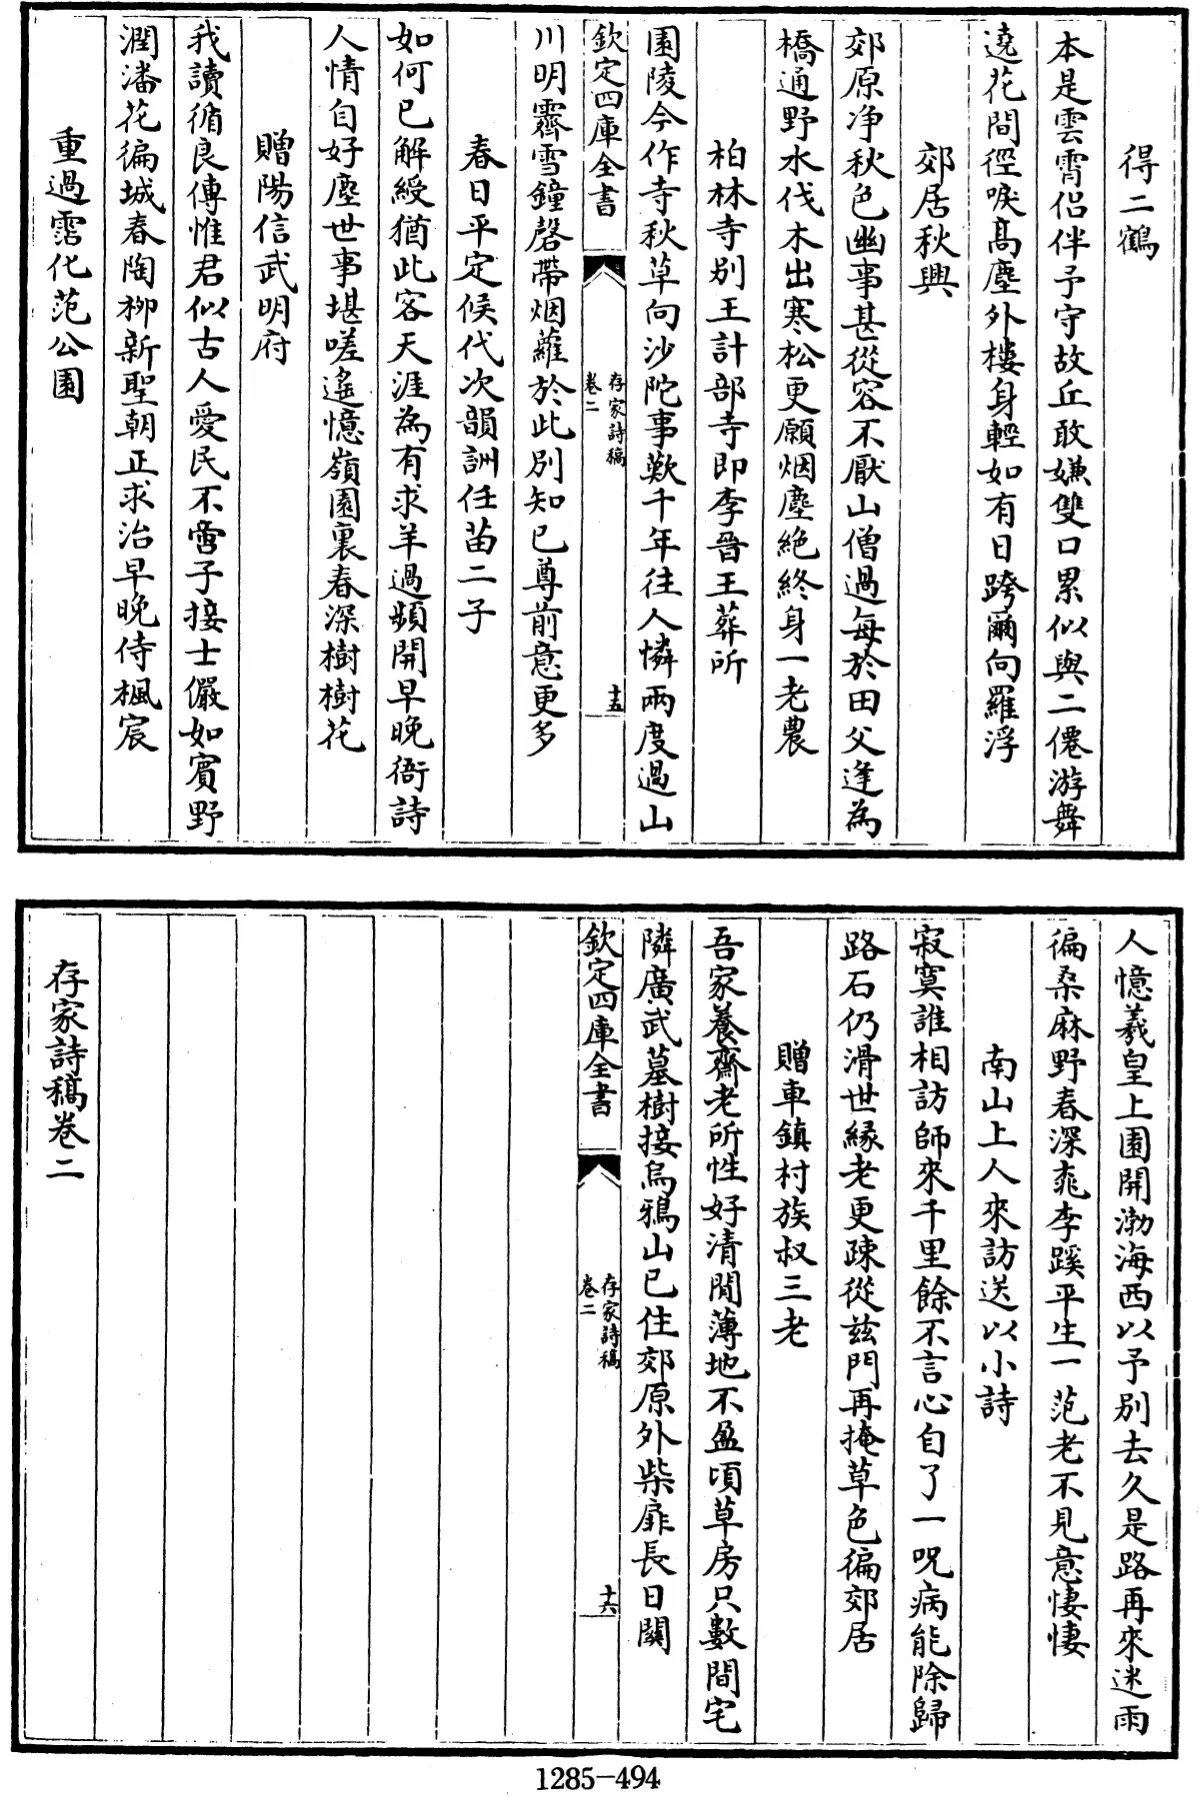 得二鶴
本是雲霄侶伴予守故丘敢嫌雙口累似與二僊游舞
遶花間徑唳髙塵外樓身輕如有日跨爾向羅浮
郊居秋興
郊原净秋色幽事甚從容不厭山僧過每於田父逢為
橋通野水伐木出寒松更願烟塵絶終身一老農
柏林寺别王計部寺即李晉王葬所
園陵今作寺秋草向沙陀事歎千年往人憐兩度過山
欽定四庫全書
存家詩稿
卷二
十五
川明霽雪鐘磬帶烟蘿於此别知已尊前意更多
春日平定候代次韻詶任苗二子
如何已解綬猶此客天涯為有求羊過頻開早晚衙詩
人情自好塵世事堪嗟遙憶嶺園裏春深樹樹花
贈陽信武明府
我讀循良傳惟君似古人愛民不啻子接士儼如賓野
潤潘花徧城春陶栁新聖朝正求治早晚侍楓宸
重過霑化范公園
人憶羲皇上園開渤海西以予别去久是路再來迷雨
徧桑麻野春深桃李蹊平生一范老不見意悽悽
南山上人來訪送以小詩
寂寞誰相訪師來千里餘不言心自了一呪病能除歸
路石仍滑世緣老更疎從兹門再掩草色徧郊居
贈車鎮村族叔三老
吾家養齋老所性好清閒薄地不盈頃草房只數間宅
隣廣武墓樹接烏鴉山已住郊原外柴扉長日關
欽定四庫全書
存家詩稿
卷二
十六
存家詩稿卷二
1285-494